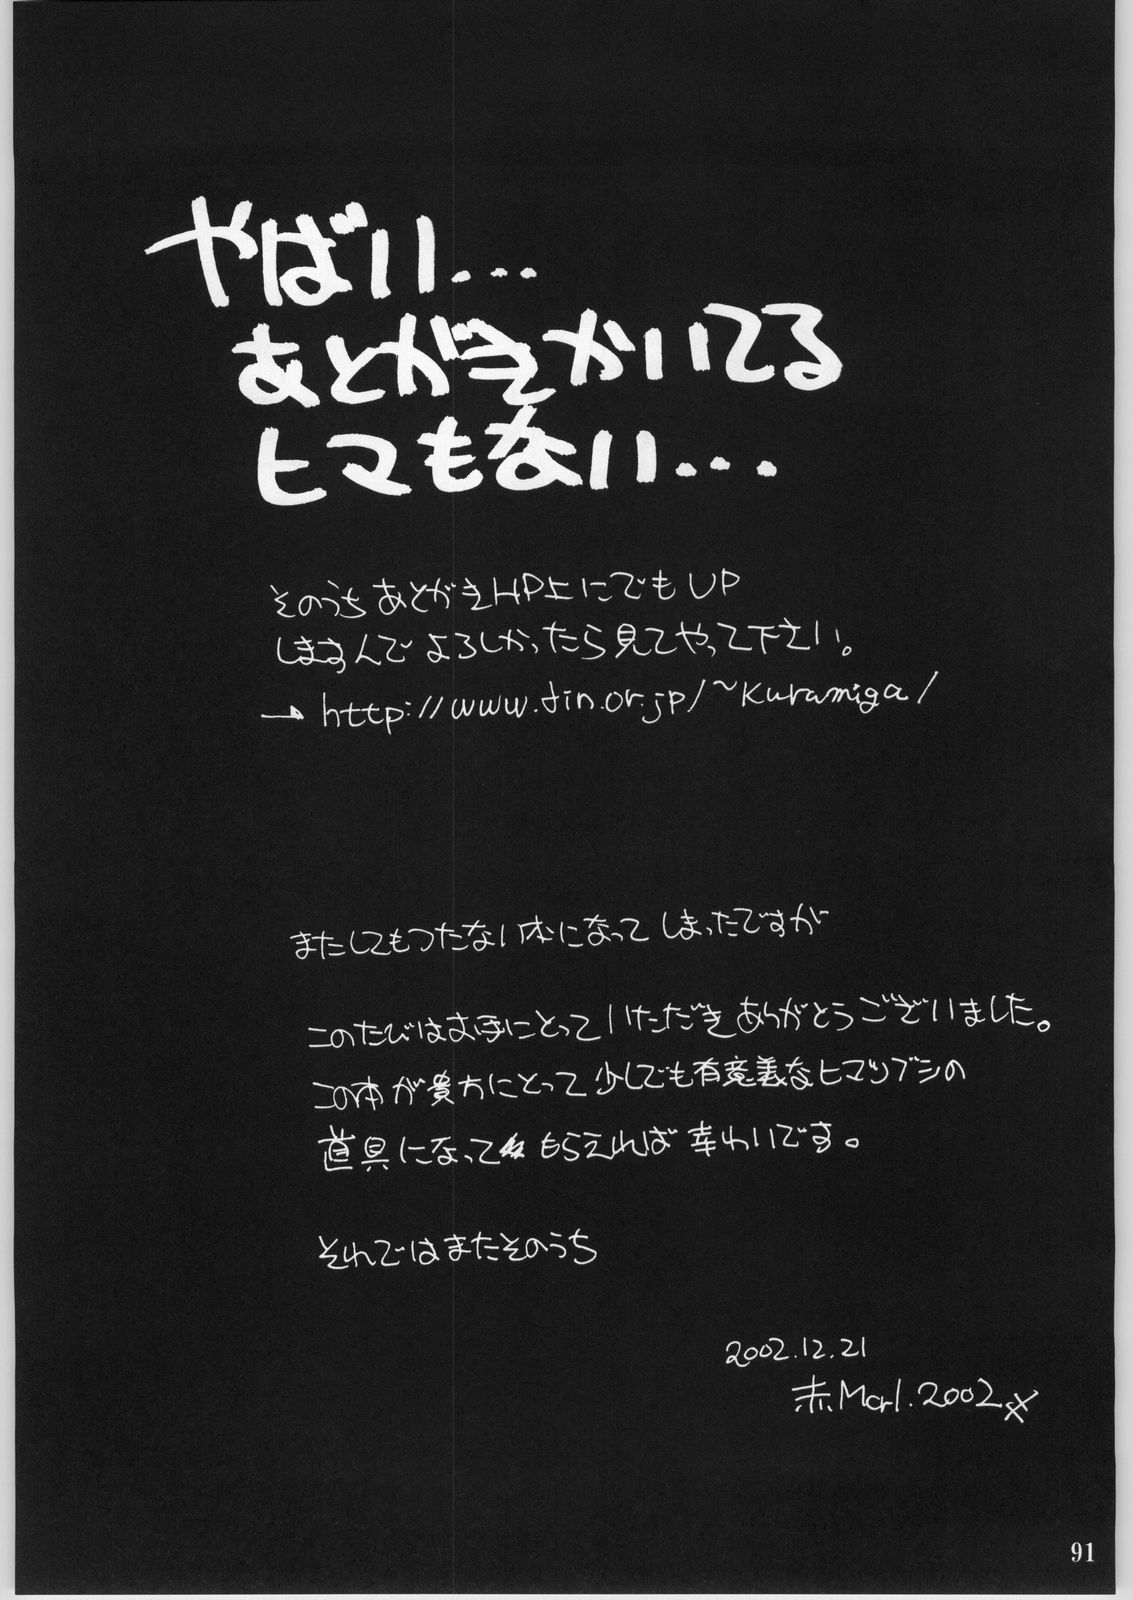 やばい...
あとがきかいてる
ヒマもない...
そのうちあとがきHP上にでもUP
しますんでよろしかったら見てやって下さい。
→ http://www.tin.or.jp/~kuramiga/
またしてもつたない本になってしまったですが
このたびはお手にとっていただきありがとうございました。
この本が貴方にとって少しでも有意義なヒマツブシの
道具になってもらえれば幸わいです。
それではまたそのうち
2002.12.21
赤Marl.2002
91